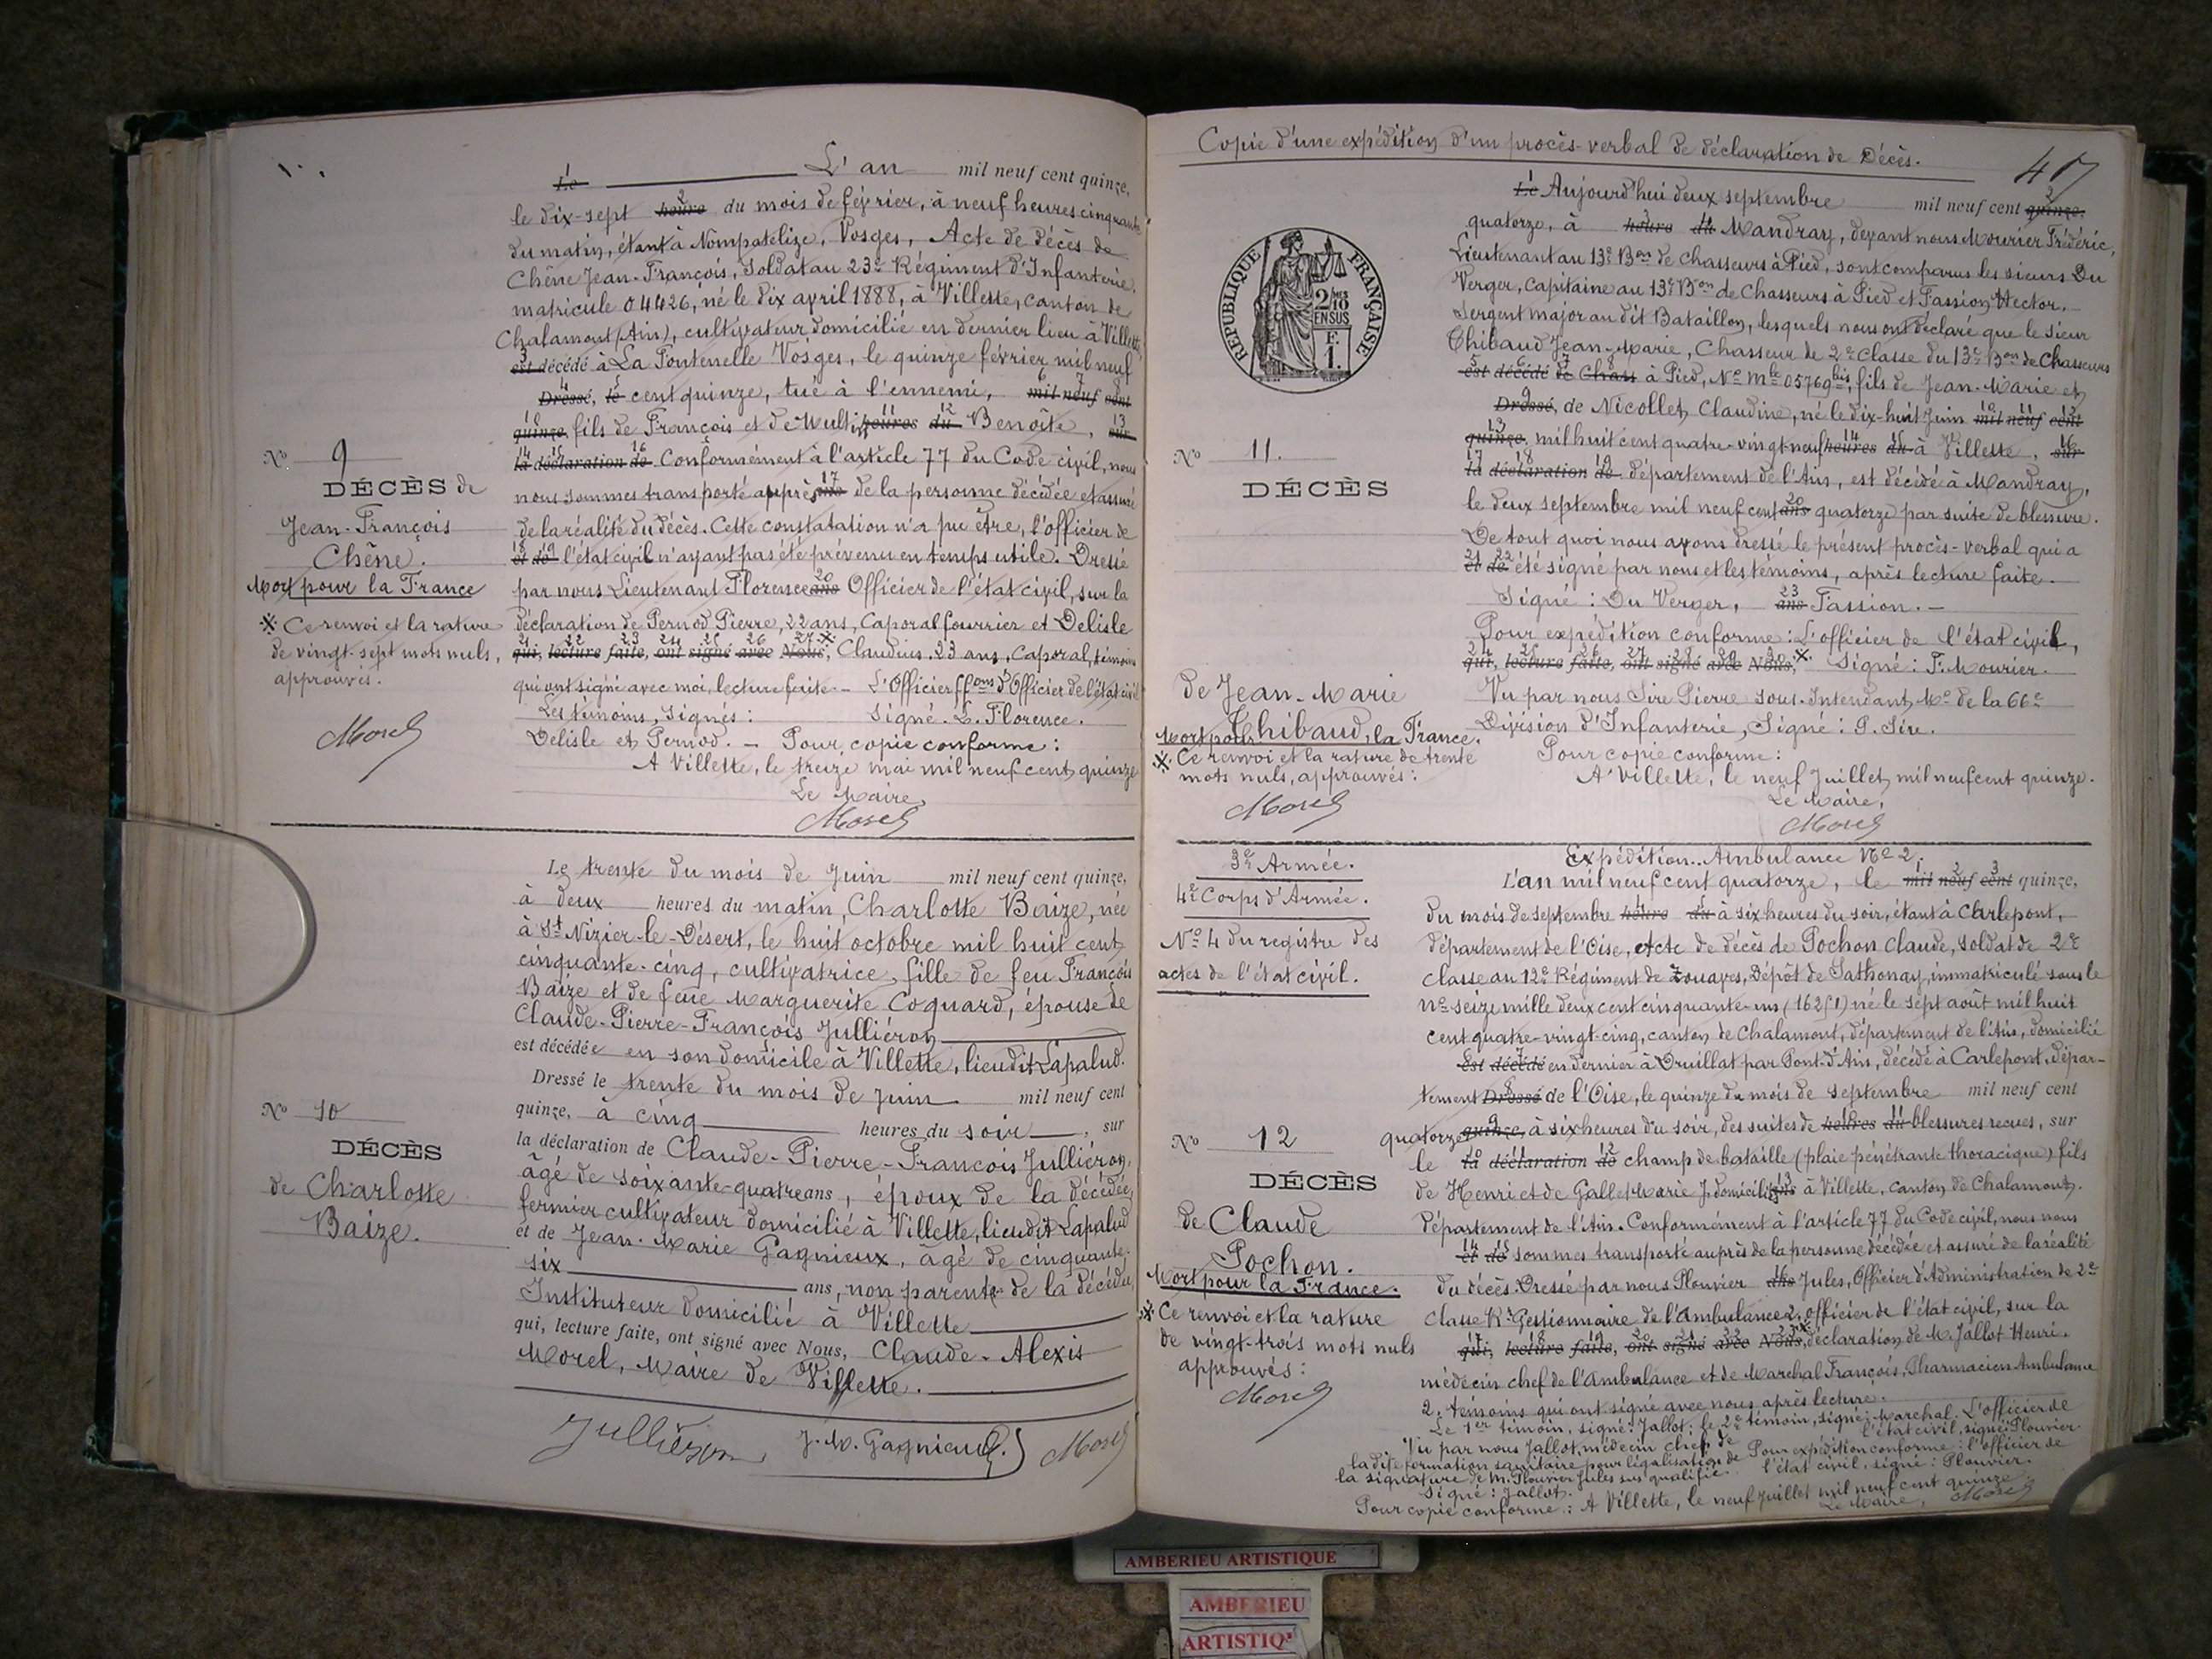 Le L'an mil neuf cent quinze,
le dix-sept heure du mois de février, à neuf heures cinquante
du matin, étant à Nompatelize, Vosges, Acte de décès de
Chêne Jean-François, Soldat au 23e Régiment d'Infanterie,
matricule 04426, né le dix avril 1888, à Villette, canton de
Chalamont (Ain), cultivateur domicilié en dernier lieu à Villette,
est décédé à La Fontenelle Vosges, le quinze février mil neuf
Dressé, le cent quinze, tué à l'ennemi, mil neuf cent
quinze, fils de François et de heures du Benoîte, sur
la déclaration de Conformément à l'article 77 du Code civil, nous
nous sommes transporté auprès ans de la personne décédée et assuré
de la réalité du décès. Cette constatation n'a pue être, l'officier de
et de l'état civil n'ayant pas été prévenu en temps utile. Dressé
par nous Lieutenant Florence ans Officier de l'état civil, sur la
déclaration de Pernod Pierre, 22 ans, Caporal fourrier et Delisle
qui, lecture faite, ont signé avec Nous, Claudius, 23 ans, Caporal, témoins
qui ont signé avec moi, lecture faite. - L'Officier ffons d'Officier de l'état civil
Les témoins, Signés : Signé. L. Florence.
Delisle et Pernod. - Pour copie conforme :
A Villette, le treize mai mil neuf cent quinze
Le Maire,
Morel
No 9
DÉCÈS de
Jean-François
Chêne.
Mort pour la France
※ Ce renvoi et la rature
de vingt-sept mots nuls,
approuvés.
Morel
Le trente du mois de Juin mil neuf cent quinze,
à deux heures du matin, Charlotte Baize, née
à St Nizier-le-Désert, le huit octobre mil huit cent
cinquante-cinq, cultivatrice, fille de feu François
Baize et de feue Marguerite Coquard, épouse de
Claude-Pierre-François Julliéron
est décédée en son domicile à Villette, lieudit Lapalud.
Dressé le trente du mois de Juin mil neuf cent
quinze, à cinq heures du soir, sur
la déclaration de Claude-Pierre-François Julliéron,
âgé de soixante-quatre ans, époux de la décédée,
fermier cultivateur domicilié à Villette, lieudit Lapalud
et de Jean-Marie Gagnieux, âgé de cinquante-
six ans, non parent de la décédée,
Instituteur domicilié à Villette
qui, lecture faite, ont signé avec Nous, Claude-Alexis
Morel, Maire de Villette.
Julliéron J. M. Gagnieux Morel
No 10
DÉCÈS
de Charlotte
Baize.
Copie d'une expédition d'un procès-verbal de déclaration de Décès.
Le Aujourd'hui deux septembre mil neuf cent quinze.
quatorze, à heure du Mandray, devant nous Mourier Frédéric,
Lieutenant au 13e Bon de Chasseurs à Pied, sont comparus les sieurs Du
Verger, Capitaine au 13e Bon de Chasseurs à Pied et Fassion Hector.
Sergent major au dit Bataillon, lesquels nous ont déclaré que le sieur
Thibaud Jean-Marie, Chasseur de 2e Classe du 13e Bon de Chasseurs
est décédé le Chass à Pied, No Mle 05769 bis, fils de Jean-Marie et
Dressé, de Nicollet Claudine, né le dix-huit Juin mil neuf cent
quinze, mil huit cent quatre-vingt-neuf heures du à Villette, sur
la déclaration de département de l'Ain, est décédé à Mandray,
le deux septembre mil neuf cent ans quatorze par suite de blessure.
De tout quoi nous avons dressé le présent procès-verbal qui a
et de été signé par nous et les témoins, après lecture faite.
Signé : Du Verger, ans Fassion. -
Pour expédition conforme : L'officier de l'état civil,
qui, lecture faite, ont signé avec Nous, Signé : F. Mourier.
Vu par nous Sire Pierre Sous-Intendant Mre de la 66e
Division d'Infanterie, Signé : P. Sire.
Pour copie conforme :
A Villette, le neuf Juillet mil neuf cent quinze.
Le Maire,
Morel
RÉPUBLIQUE FRANÇAISE
2/10 EN SUS
F. 1.
No 11.
DÉCÈS
de Jean-Marie
Thibaud,
Mort pour la France.
※ Ce renvoi et la rature de trente
mots nuls, approuvés :
Morel
3e Armée.
4e Corps d'Armée.
No 4 du registre des
actes de l'état civil.
Expédition. Ambulance No 2.
L'an mil neuf cent quatorze, le mil neuf cent quinze,
du mois de septembre heure du à six heures du soir, étant à Carlepont,
département de l'Oise, Acte de décès de Pochon Claude, soldat de 2e
classe au 12e Régiment de Zouaves, Dépôt de Sathonay, immatriculé sous le
no seize mille deux cent cinquante-un (16251) né le sept août mil huit
cent quatre-vingt-cinq, canton de Chalamont, département de l'Ain, domicilié
est décédé en dernier à Druillat par Pont-d'Ain, décédé à Carlepont, dépar-
tement Dressé de l'Oise, le quinze du mois de septembre mil neuf cent
quatorze quinze, à six heures du soir, des suites de heures du blessures reçues, sur
le la déclaration de champ de bataille (plaie pénétrante thoracique) fils
de Henri et de Gallet Marie J. domiciliés ans à Villette, canton de Chalamont.
Département de l'Ain. Conformément à l'article 77 du Code civil, nous nous
et de sommes transporté auprès de la personne décédée et assuré de la réalité
du décès. Dressé par nous Plouvier ans Jules, Officier d'Administration de 2e
classe Gestionnaire de l'Ambulance 2, officier de l'état civil, sur la
qui, lecture faite, ont signé avec Nous, déclaration de M. Jallot Henri.
médecin chef de l'Ambulance et de Marchal François, Pharmacien Ambulance
2, témoins qui ont signé avec nous après lecture.
Le 1er témoin, signé : Jallot : le 2e témoin, signé : Marchal. L'officier de
l'état civil, signé Plouvier.
Vu par nous Jallot, médecin chef de
la dite formation sanitaire pour légalisation de
la signature de M. Plouvier Jules sus qualifié.
Signé : Jallot.
Pour expédition conforme : l'officier de
l'état civil, signé : Plouvier.
Pour copie conforme : A Villette, le neuf Juillet mil neuf cent quinze
Le Maire, Morel
No 12
DÉCÈS
de Claude
Pochon.
Mort pour la France.
※ Ce renvoi et la rature
de vingt-trois mots nuls
approuvés :
Morel
AMBERIEU ARTISTIQUE
AMBERIEU
ARTISTIQ